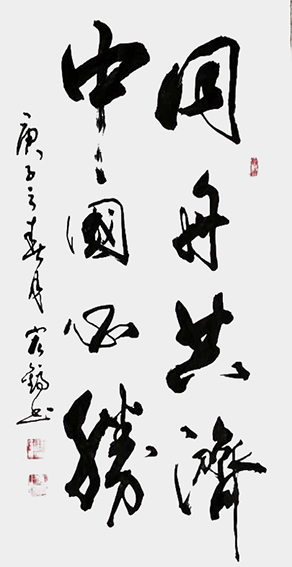 同舟共濟
中國必勝
庚子之春月